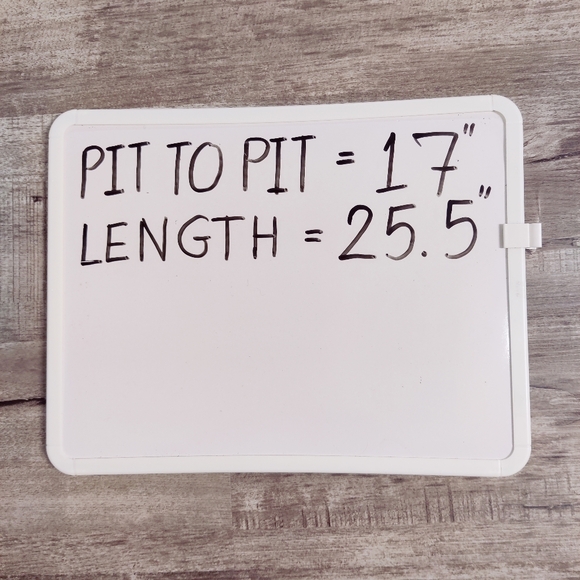 PIT TO PIT = 17"
LENGTH = 25.5"